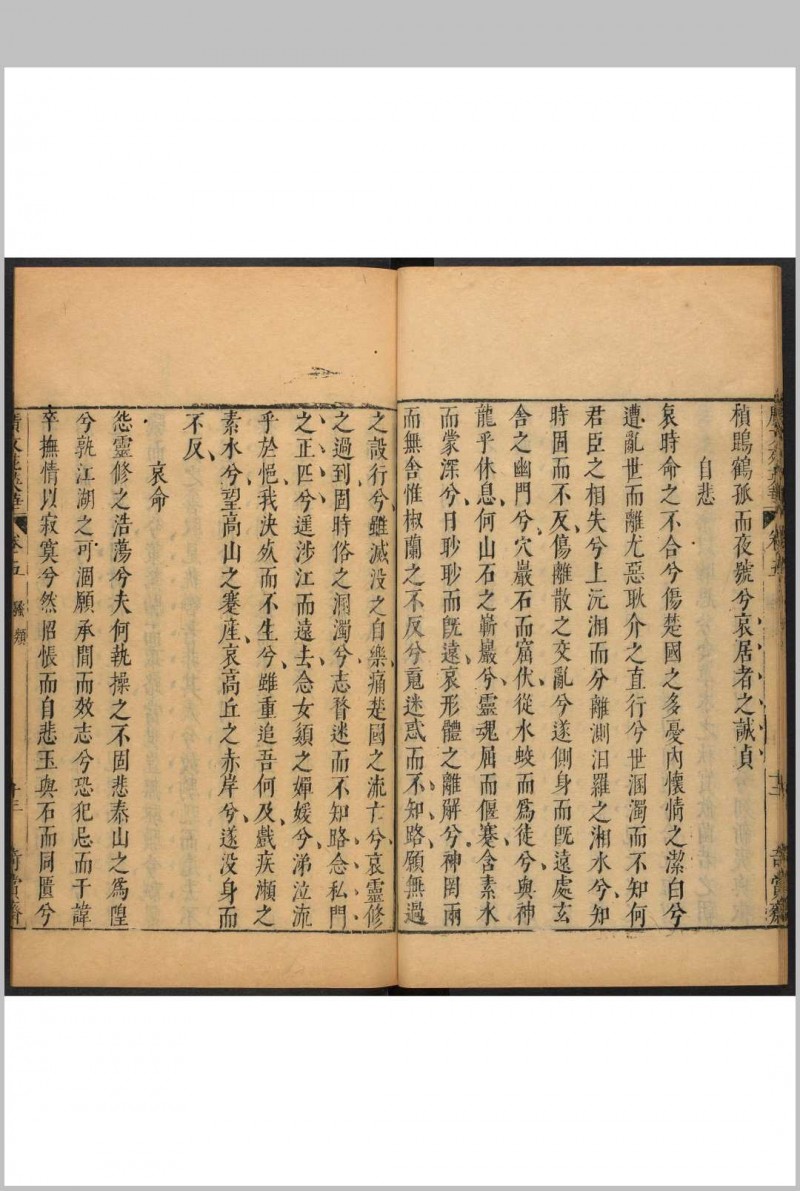 楨鴟鶴孤而夜號兮哀居者之誠貞
自悲
哀時命之不合兮傷楚國之多憂內懷情之潔白兮
遭亂世而離尤惡耿介之直行兮世溷濁而不知何
君臣之相失兮上沅湘而分離測汨羅之湘水兮知
時固而不反傷離散之交亂兮遂側身而旣遠處玄
舍之幽門兮穴巖石而窟伏從水蛟而爲徒兮與神
龍乎休息何山石之嶄巖兮靈魂屈而偃蹇含素水
而蒙深兮日眇眇而旣遠哀形體之離解兮神罔兩
而無舍惟椒蘭之不反兮䰟迷惑而不知路願無過
之設行兮雖滅没之自樂痛楚國之流亡兮哀靈修
之過到固時俗之溷濁兮志瞀迷而不知路念私門
之正匹兮遥涉江而遠去念女嬃之嬋媛兮涕泣流
乎於悒我決死而不生兮雖重追吾何及戲疾瀨之
素水兮望高山之蹇産哀高丘之赤岸兮遂没身而
不反
哀命
怨靈修之浩蕩兮夫何執操之不固悲泰山之爲隍
兮孰江湖之可涸願承間而效志兮恐犯忌而干諱
卒撫情以寂寞兮然怊悵而自悲玉與石而同匱兮
卷五 騷類 十三 奇賞齋